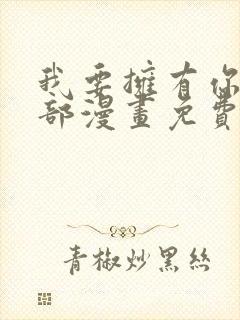 我要擁有你
部漫畫免費
青椒炒黑絲